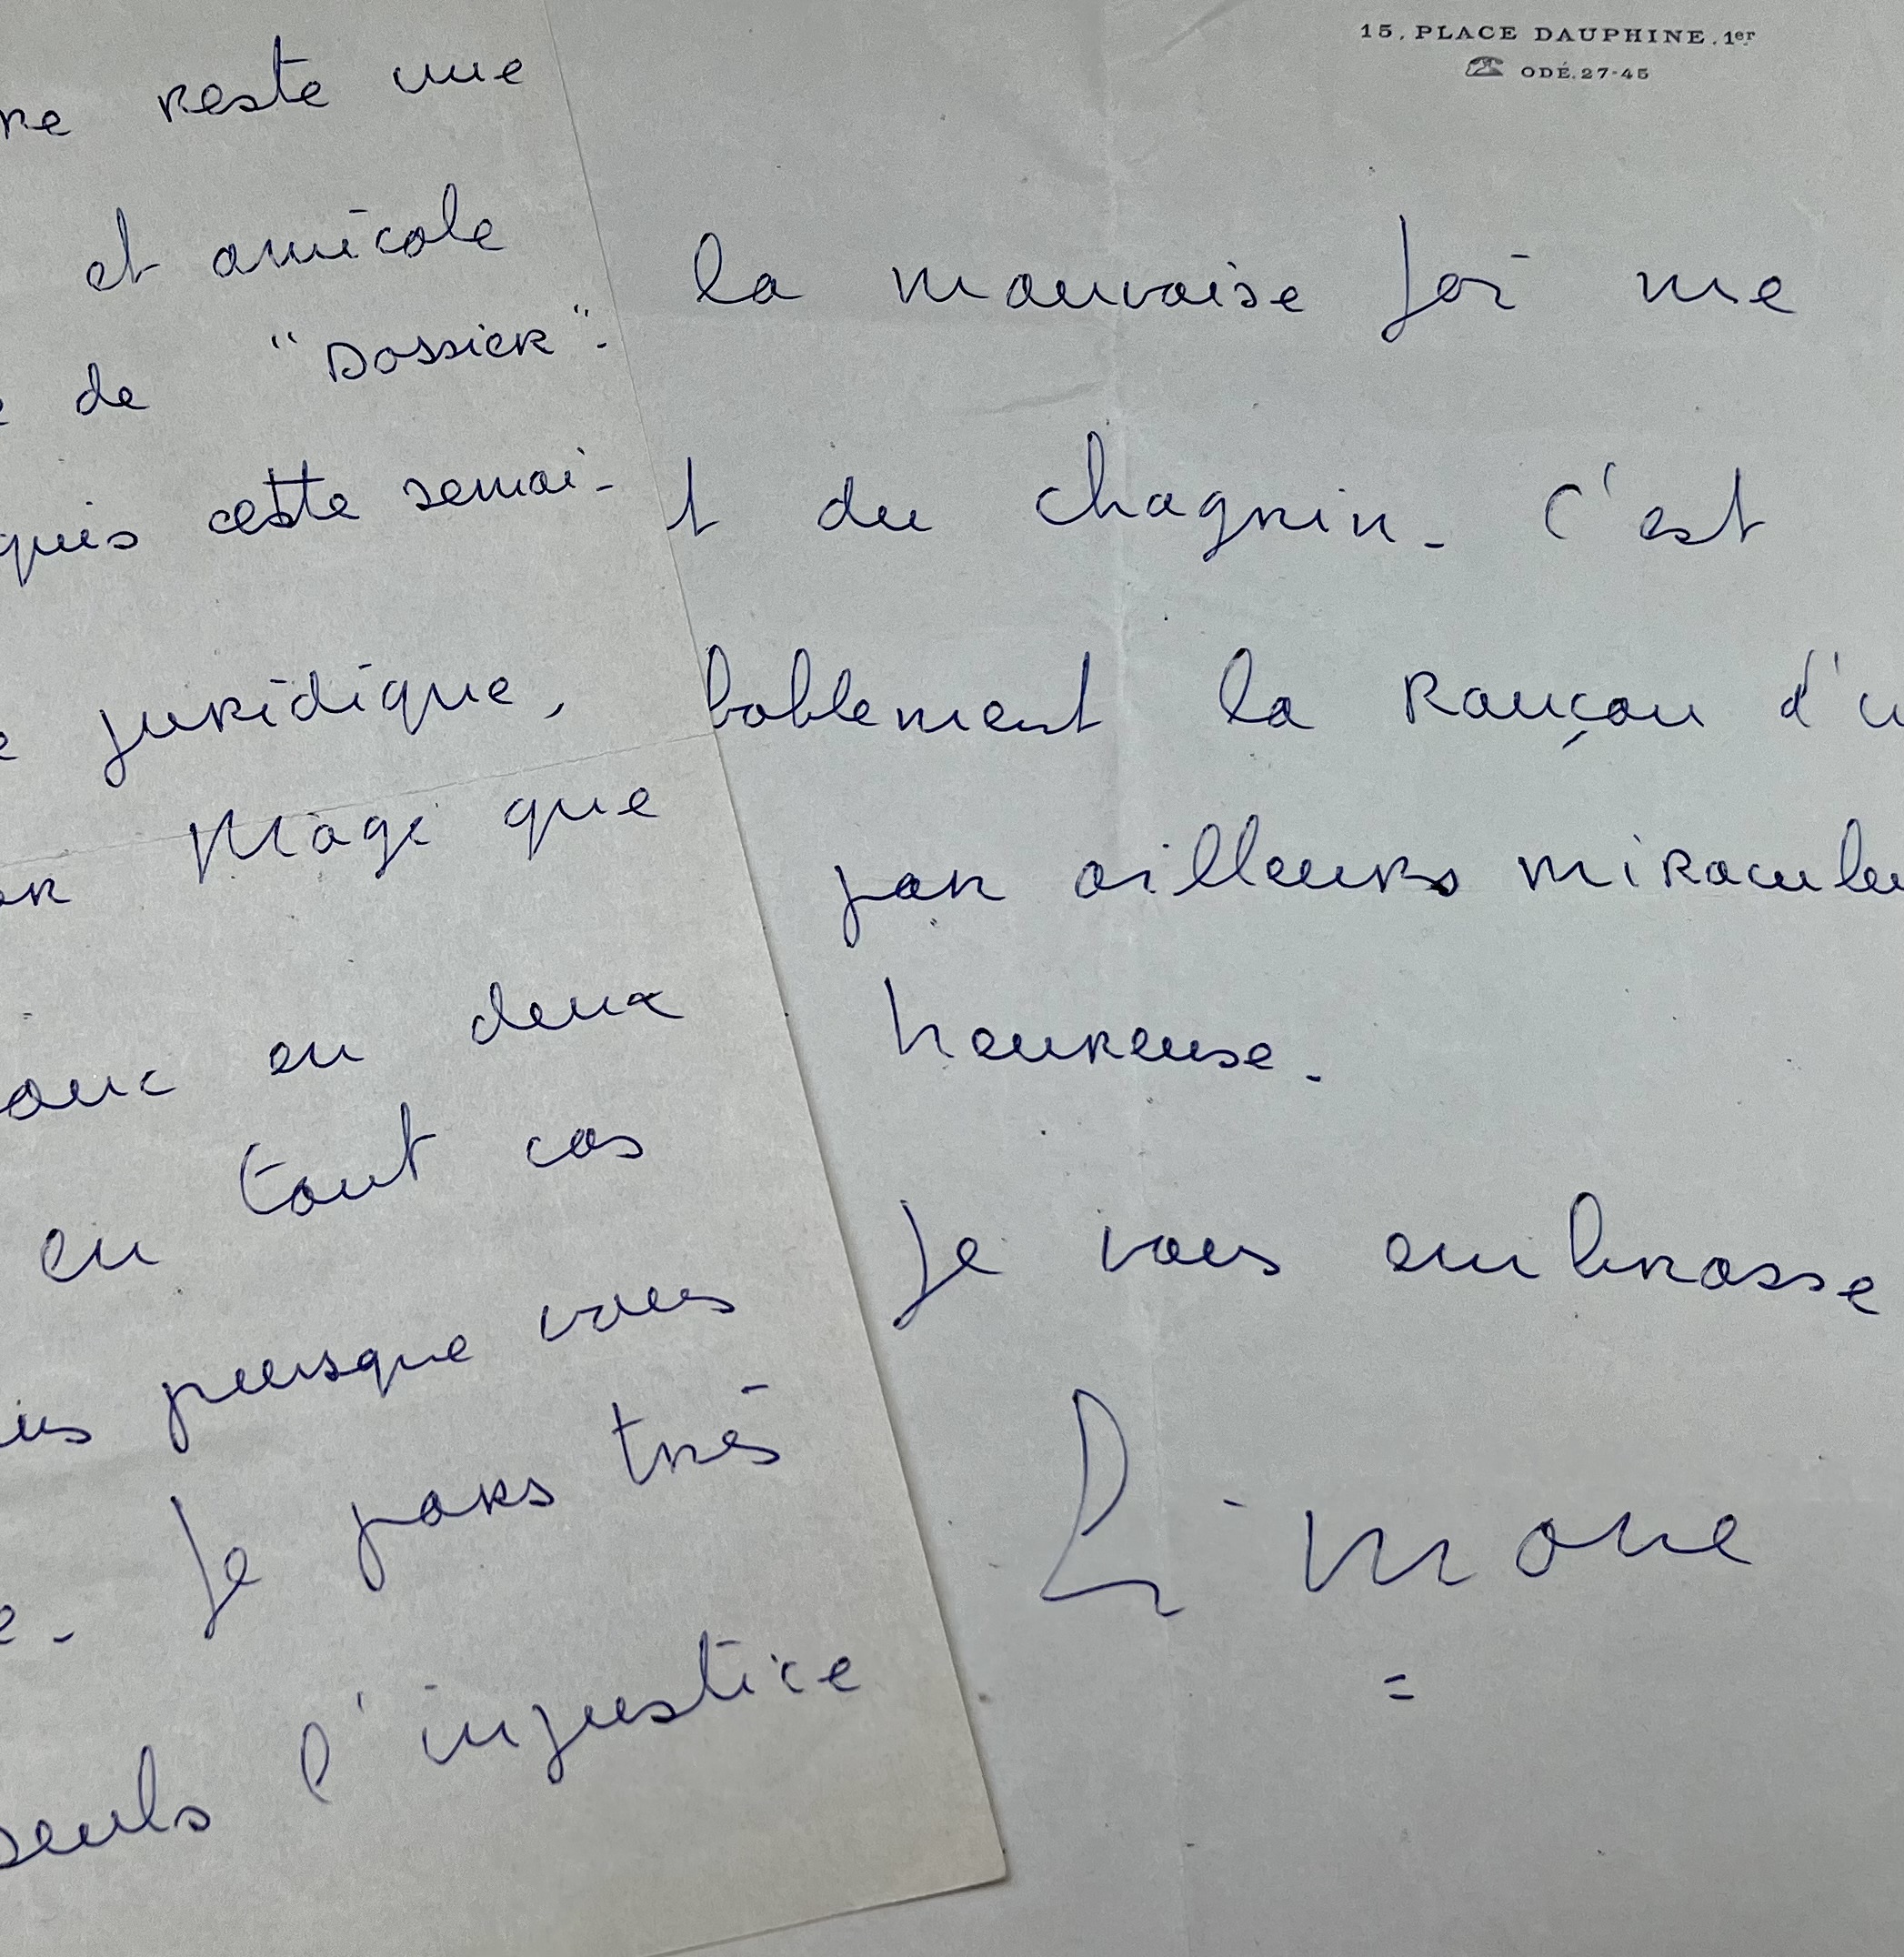 re reste une
et amicale
e de "Dossier".
quis cette semai-
e juridique,
Magi que
onc en deux
en tout cas
puisque vous
e. Je pars très
seuls l'injustice
15, PLACE DAUPHINE. 1er
☎ ODÉ. 27-45
la mauvaise foi me
t du chagrin. C'est
bablement la Rançon d'u
par ailleurs miraculeu
heureuse.
Je vous embrasse
Simone
=